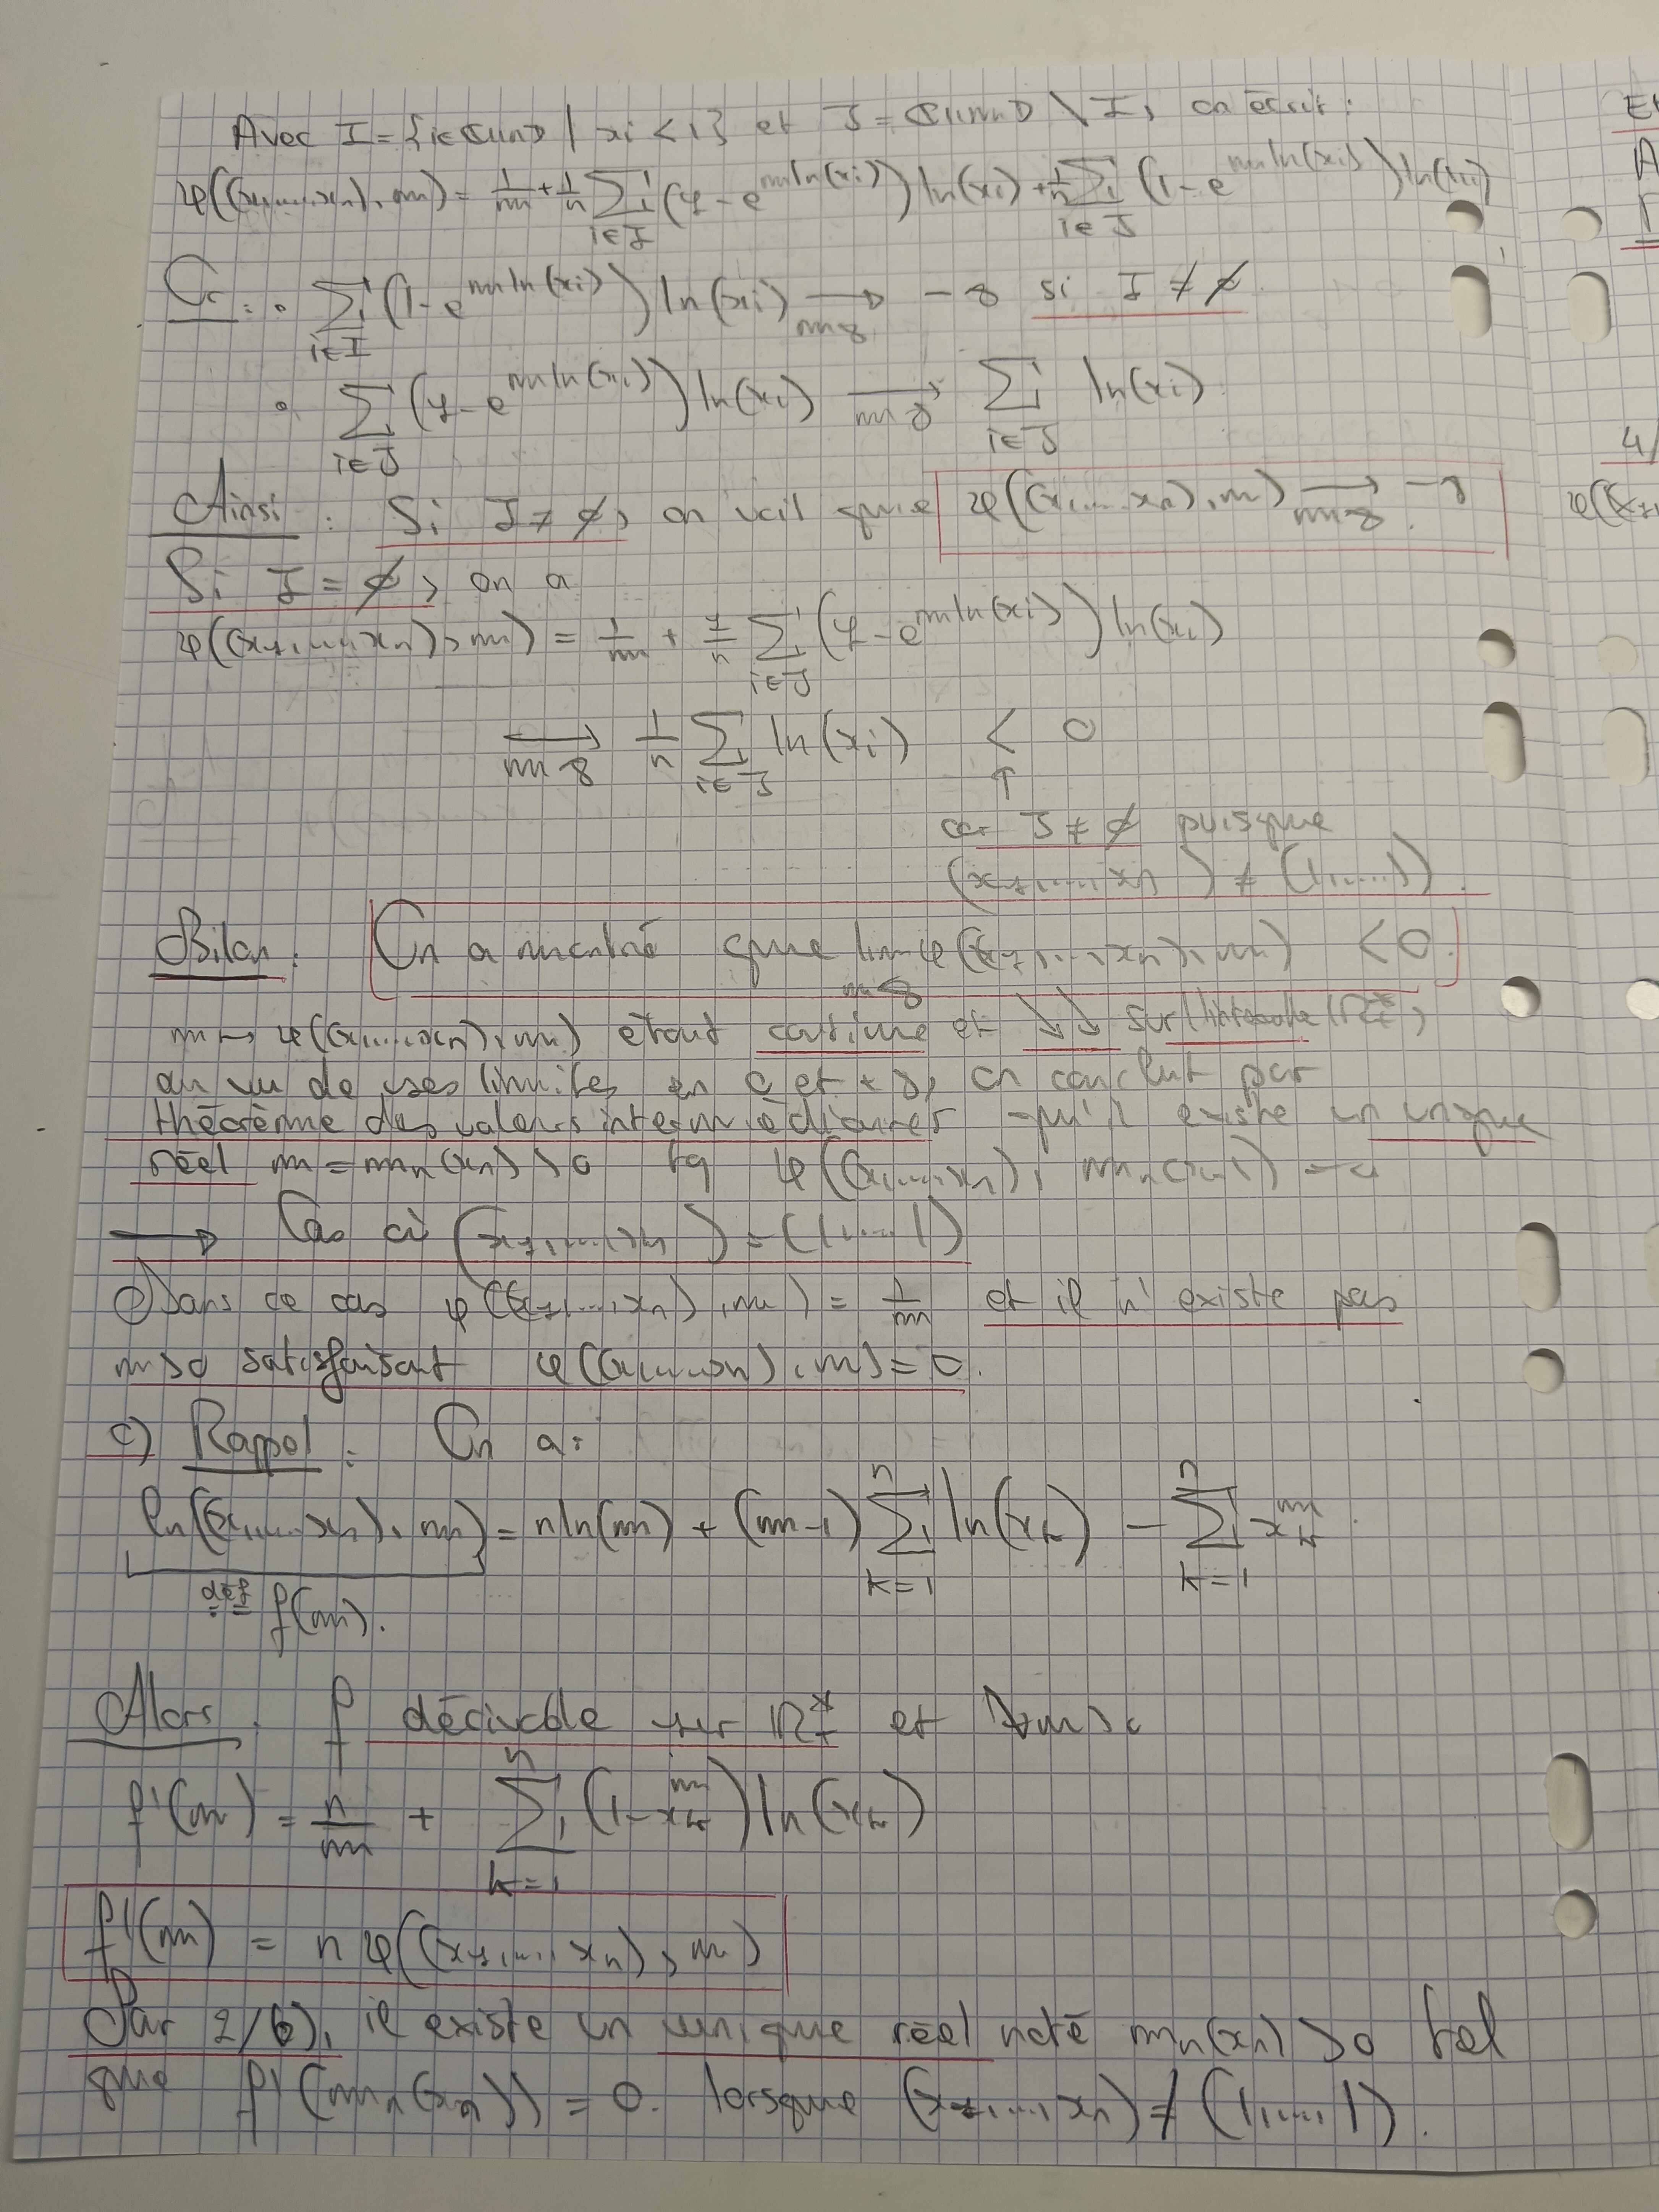 Avec I = {i∈⟦1,n⟧ / xi < 1} et J = ⟦1,n⟧ \ I, on écrit :
φ((x1,...,xn), m) = 1/m + 1/n Σ_{i∈I} (1 - e^{m ln(xi)}) ln(xi) + 1/n Σ_{i∈J} (1 - e^{m ln(xi)}) ln(xi)
Or : • Σ_{i∈I} (1 - e^{m ln(xi)}) ln(xi) →_{m∞} -∞ si I ≠ ∅.
• Σ_{i∈J} (1 - e^{m ln(xi)}) ln(xi) →_{m∞} Σ_{i∈J} ln(xi).
Ainsi : Si I ≠ ∅, on voit que φ((x1,...,xn), m) →_{m∞} -∞.
Si I = ∅, on a
φ((x1,...,xn), m) = 1/m + 1/n Σ_{i∈J} (1 - e^{m ln(xi)}) ln(xi)
→_{m∞} 1/n Σ_{i∈J} ln(xi) < 0
↑
car J ≠ ∅ puisque
(x1,...,xn) ≠ (1,...,1).
Bilan : On a montré que lim_{m∞} φ((x1,...,xn), m) < 0.
m ↦ φ((x1,...,xn), m) étant continue et ↘↘ sur l'intervalle ℝ+*,
au vu de ses limites en 0 et +∞, on conclut par
théorème des valeurs intermédiaires qu'il existe un unique
réel m = mn(xn) > 0 tq φ((x1,...,xn), mn(xn)) = 0
→ Cas où (x1,...,xn) = (1,...,1)
Dans ce cas φ((x1,...,xn), m) = 1/m et il n'existe pas
m>0 satisfaisant φ((x1,...,xn), m) = 0.
c) Rappel : On a :
ln((x1,...,xn), m) = n ln(m) + (m-1) Σ_{k=1}^{n} ln(xk) - Σ_{k=1}^{n} xk^m
déf = f(m).
Alors. f dérivable sur ℝ+* et ∀m>0
f'(m) = n/m + Σ_{k=1}^{n} (1 - xk^m) ln(xk)
f'(m) = n φ((x1,...,xn), m)
Par 2/b), il existe un unique réel noté mn(xn) > 0 tel
que f'(mn(xn)) = 0. lorsque (x1,...,xn) ≠ (1,...,1).